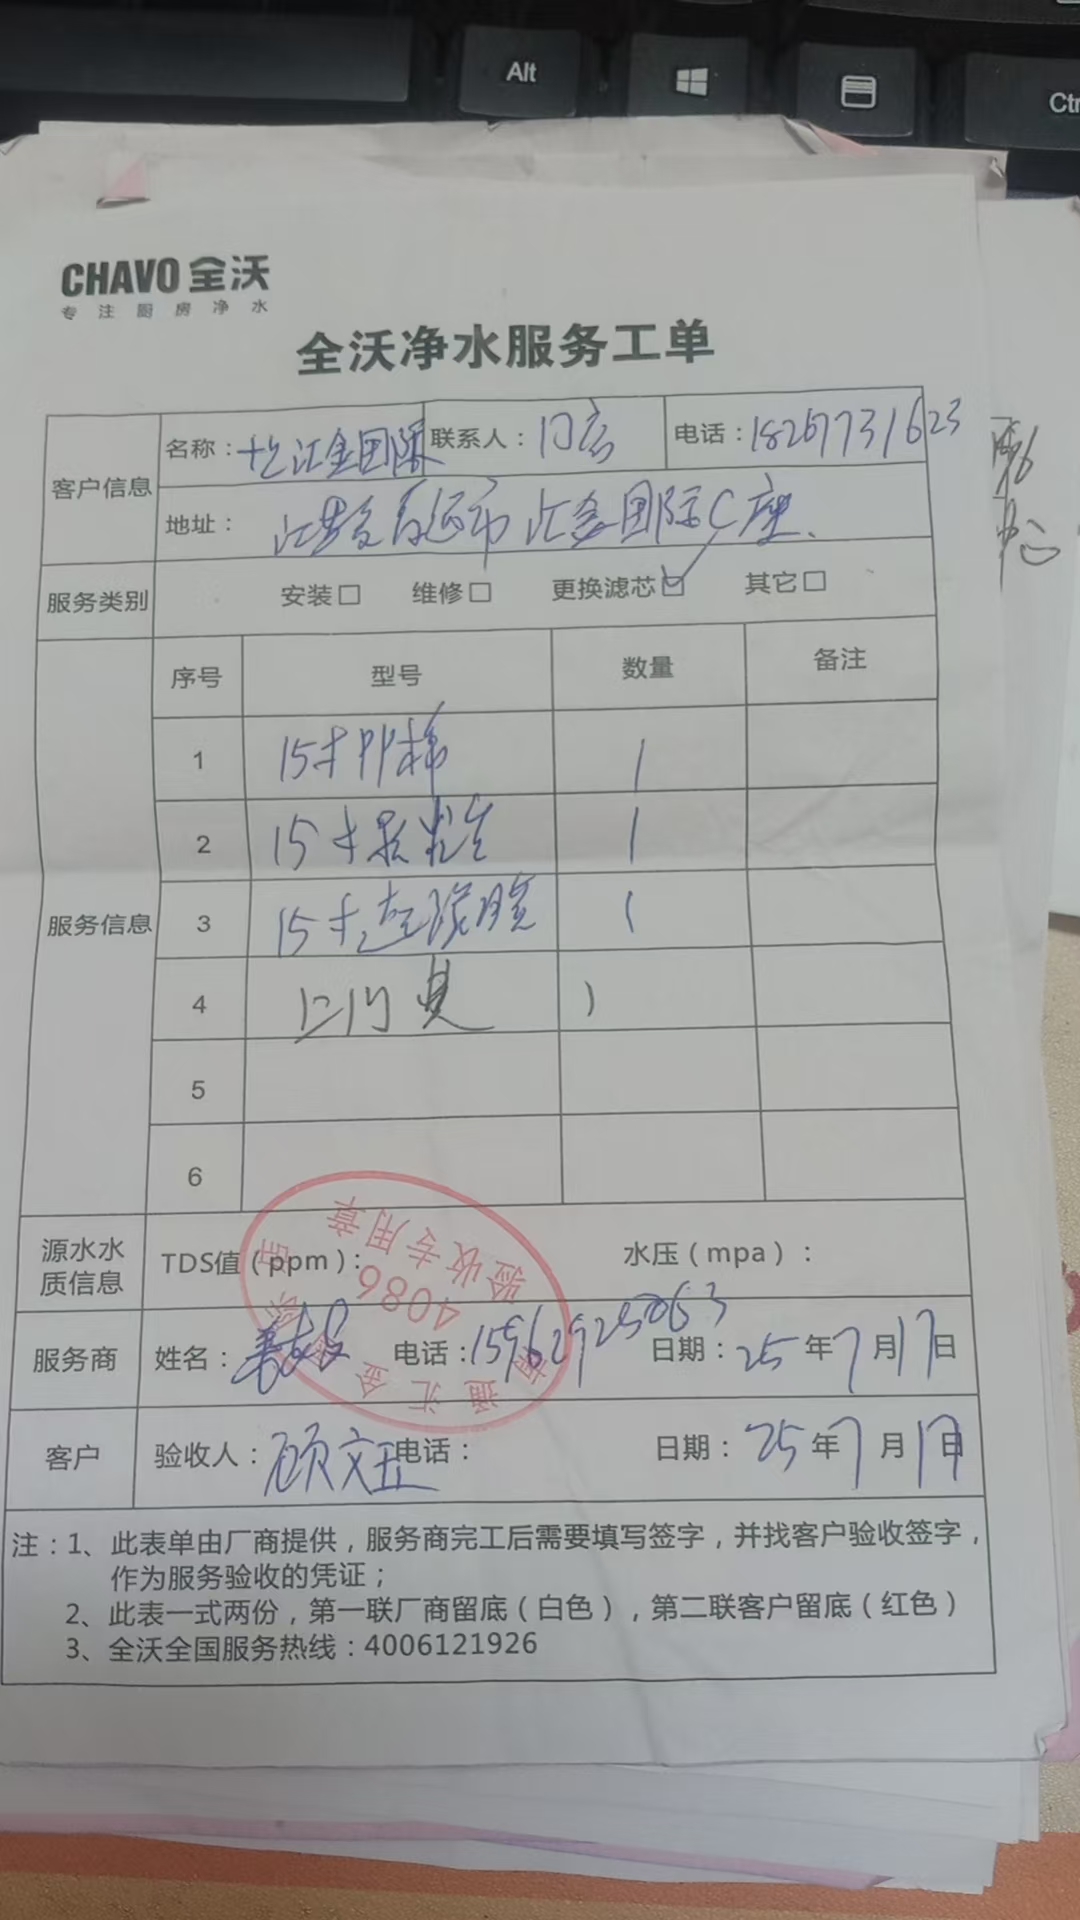 Alt
Ctr
CHAVO 全沃
专注厨房净水
全沃净水服务工单
客户信息
名称：汇金国际 联系人：门店 电话：18267731623
地址： 汇金国际C座
中心
服务类别 安装□ 维修□ 更换滤芯☑ 其它□
服务信息
序号 型号 数量 备注
1 15寸PP棉 1
2 15寸颗粒 1
3 15寸超滤膜 1
4 上门 1
5
6
源水水质信息 TDS值（ppm）： 水压（mpa）：
4086
验收专用章
服务商 姓名： 电话：15962925063 日期：25年7月17日
客户 验收人：顾文 电话： 日期：25年7月17日
注：1、此表单由厂商提供，服务商完工后需要填写签字，并找客户验收签字，
作为服务验收的凭证；
2、此表一式两份，第一联厂商留底（白色），第二联客户留底（红色）
3、全沃全国服务热线：4006121926